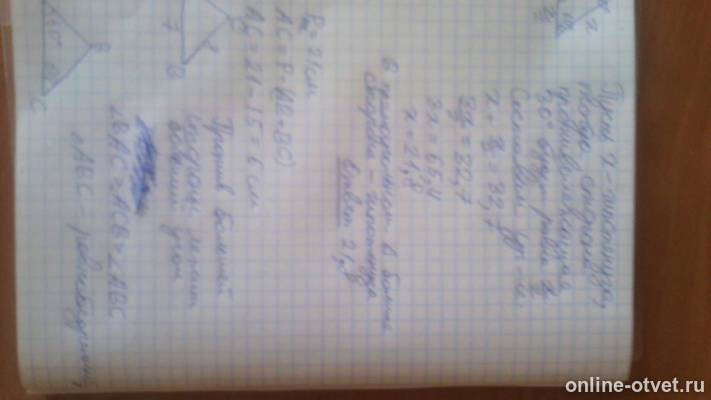 Пусть x - гипотенуза,
тогда сторона
противолежащая
30° будет равна x/2
Составим ур-и.
x + x/2 = 32,7
3x/2 = 32,7
3x = 65,4
x = 21,8
В треугольнике большая
сторона - гипотенуза
Ответ 21,8
P = 21 см
AC = P - (AB + BC)
AC = 21 - 15 = 6 см
Против большей
стороны лежит
больший угол
∠BAC = ∠ACB = ∠ABC
△ABC - равносторонний,
7
B
B
C
online-otvet.ru